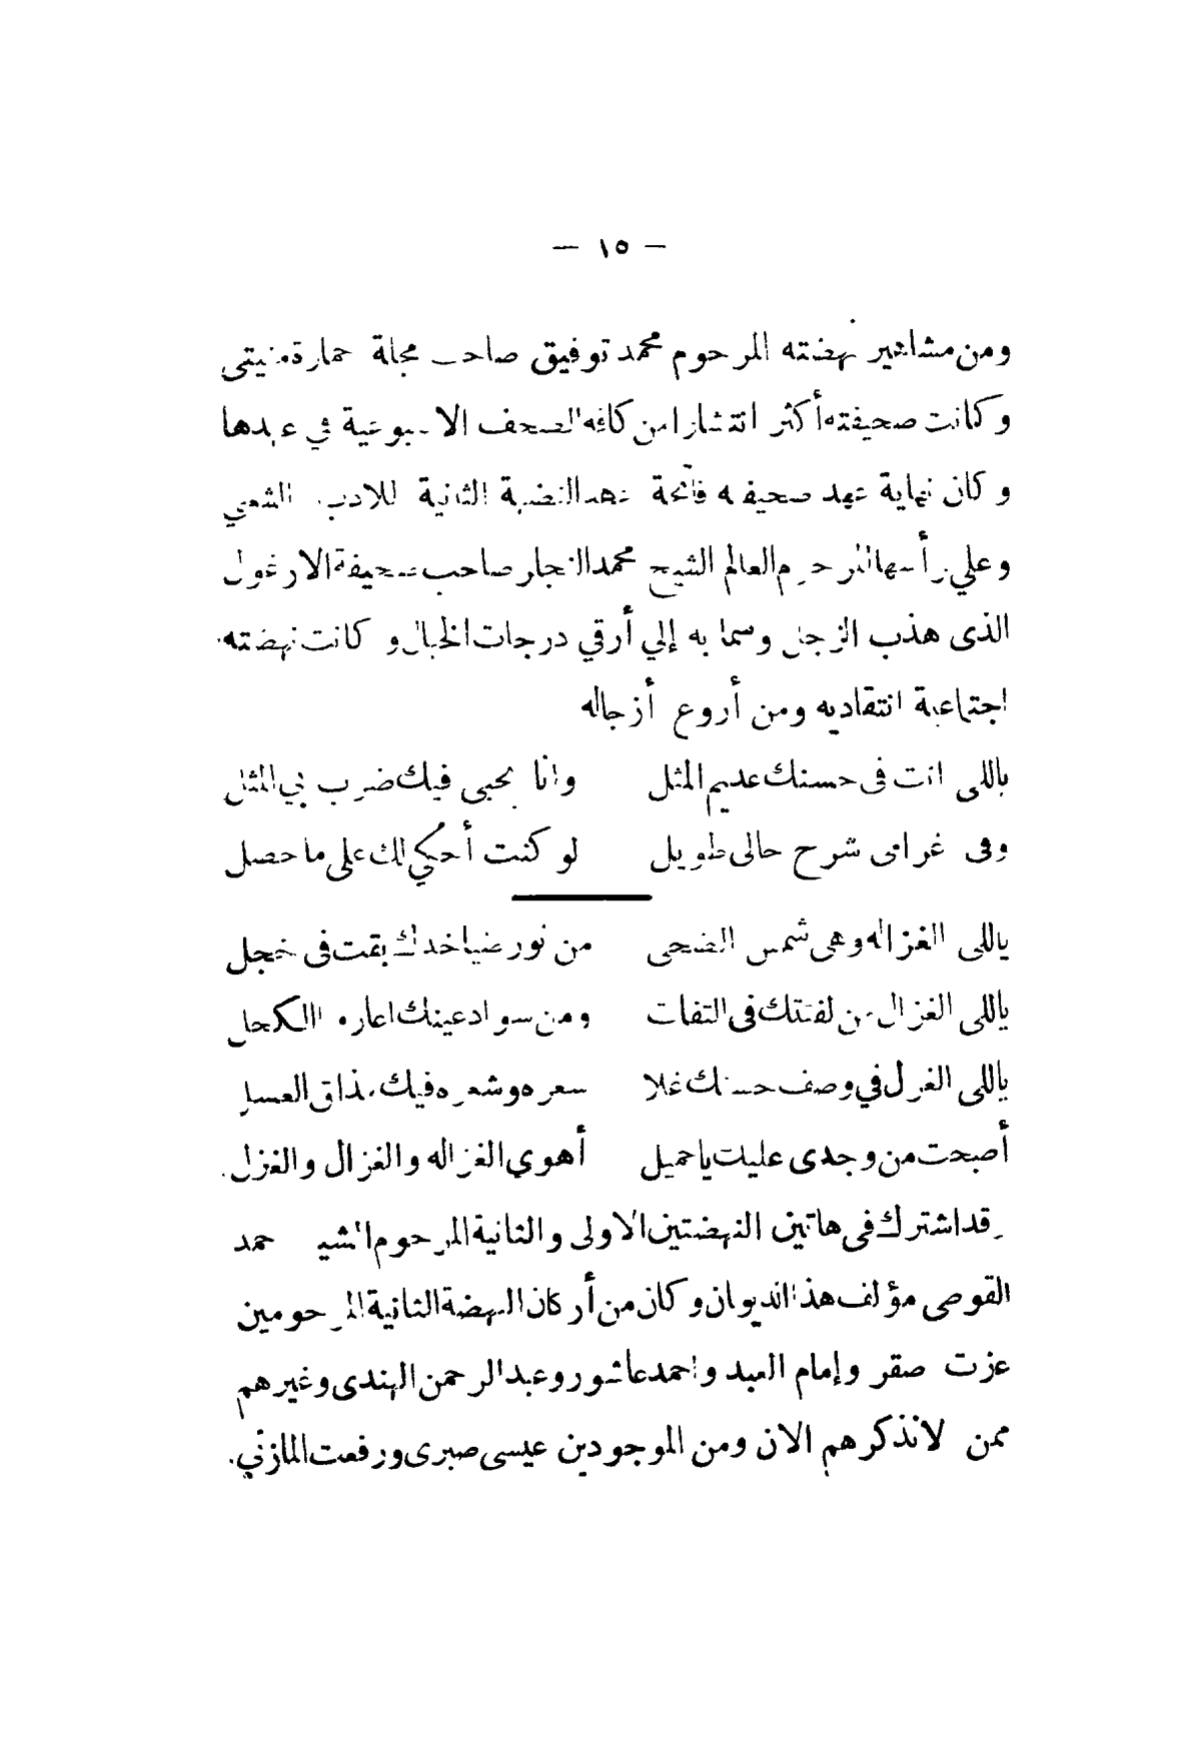 — ١٥ —
ومن مشاهير نهضته المرحوم محمد توفيق صاحب مجلة حمارة منيتى
وكانت صحيفته أكثر انتشارا من كافه الصحف الاسبوعية في عهدها
وكان نهاية عهد صحيفته فاتحة عهد النهضة الثانية للادب الشعبي
وعلي رأسها المرحوم العالم الشيخ محمد النجار صاحب صحيفة الارغول
الذى هذب الزجل وسما به إلي أرقي درجات الخيال وكانت نهضته
اجتماعية انتقاديه ومن أروع أزجاله
ياللى انت فى حسنك عديم المثل وانا بحبى فيك ضرب بي المثل
وفى غرامى شرح حالى طويل لو كنت أحكي لك على ما حصل
ياللى الغزاله وهى شمس الضحى من نور ضيا خدك بقت فى خجل
ياللى الغزال من لفتتك فى التفات ومن سواد عينك اعاره الكحل
ياللى الغزل في وصف حسنك غلا سعره وشعره فيك مذاق العسل
أصبحت من وجدى عليك ياجميل أهوي الغزاله والغزال والغزل
وقد اشترك فى هاتين النهضتين الاولى والثانية المرحوم الشيخ احمد
القوصى مؤلف هذا الديوان وكان من أركان النهضة الثانية المرحومين
عزت صقر وإمام العبد واحمد عاشور وعبد الرحمن الهندى وغيرهم
ممن لا نذكرهم الان ومن الموجودين عيسى صبرى ورفعت المازني